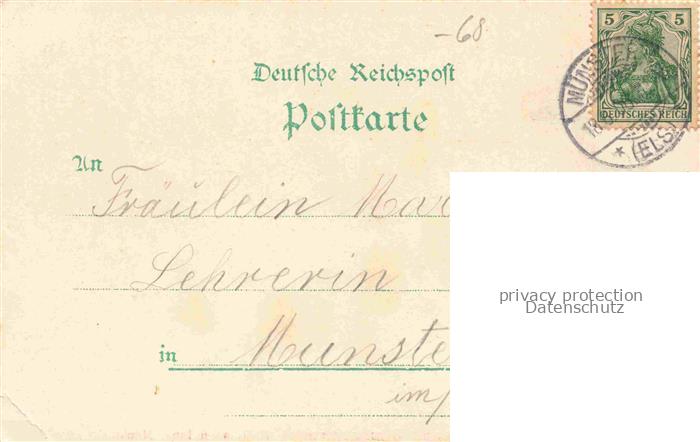 -68
5 5
DEUTSCHES REICH
MÜNSTER
18
* (ELS.)
Deutsche Reichspost
Postkarte
An
Fräulein Mar
Lehrerin
in Munste
im
privacy protection
Datenschutz